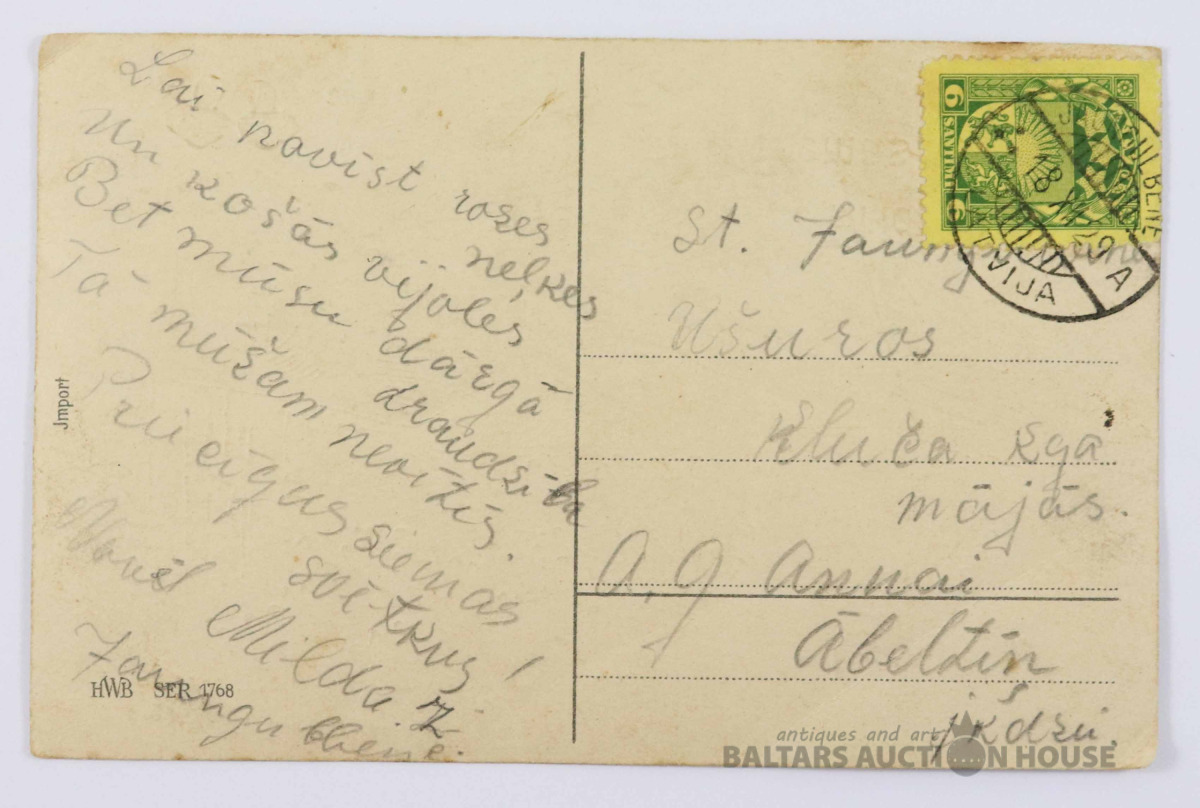 Lai novīst rozes
neļķes
un košās vijoles
Bet mūsu dārgā
draudzība
Tā mūžam nevītīs.
Priecīgus ziemas
svētkus!
Milda. Z.
Jaungulbenē.
Jmport
HWB SER 1768
6 SANTIMI 6
LATVIJA
18 XII 29
A
St. Jaungulbene
Ušuros
Kluča kga
mājās.
A. g Annai
Ābeltiņ
jkdzei.
antiques and art
BALTARS AUCTION HOUSE